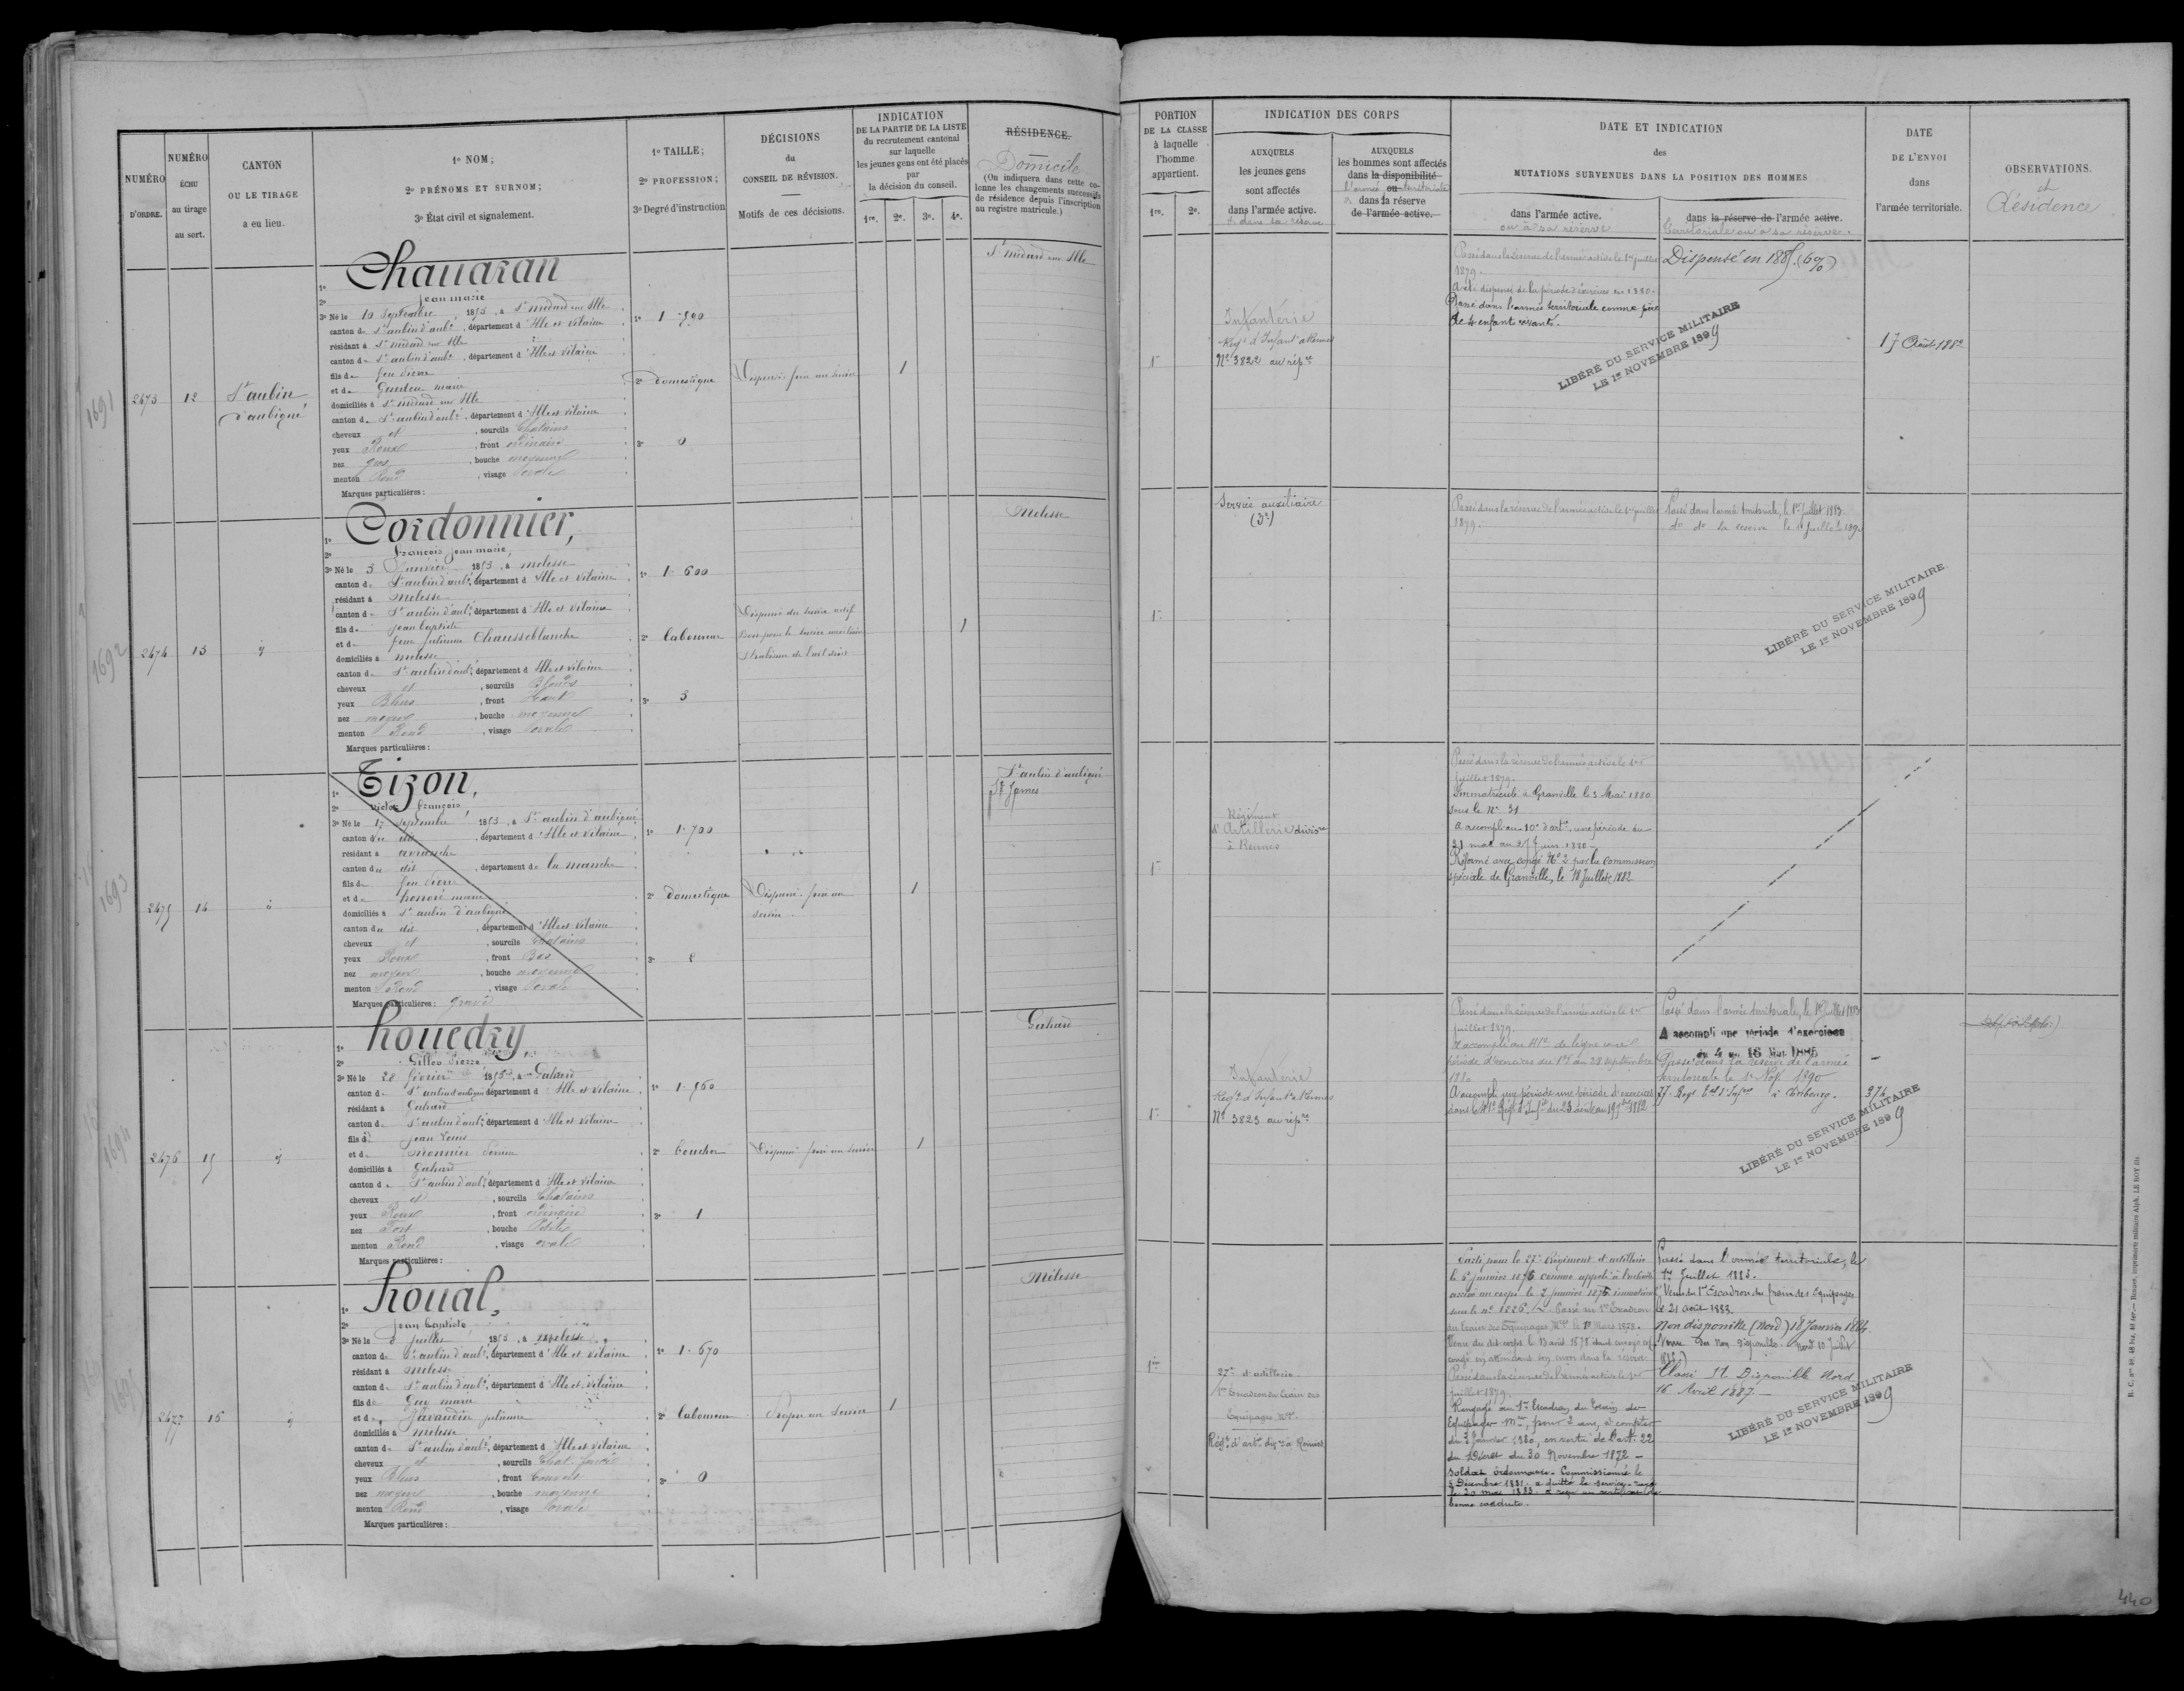 NUMÉRO
D'ORDRE.
NUMÉRO
ÉCHU
au tirage
au sort.
CANTON
OU LE TIRAGE
a eu lieu.
1º NOM;
2º PRÉNOMS ET SURNOM;
3º État civil et signalement.
1º TAILLE;
2º PROFESSION;
3º Degré d'instruction
DÉCISIONS
du
CONSEIL DE RÉVISION.
Motifs de ces décisions.
INDICATION
DE LA PARTIE DE LA LISTE
du recrutement cantonal
sur laquelle
les jeunes gens ont été placés
par
la décision du conseil.
1re. 2e. 3e. 4e.
RÉSIDENCE.
Domicile
(On indiquera dans cette co-
lonne les changements successifs
de résidence depuis l'inscription
au registre matricule.)
PORTION
DE LA CLASSE
à laquelle
l'homme
appartient.
1re. 2e.
INDICATION DES CORPS
AUXQUELS
les jeunes gens
sont affectés
dans l'armée active.
et dans la réserve
AUXQUELS
les hommes sont affectés
dans la disponibilité
l'armée ou territoriale
dans la réserve
de l'armée active.
DATE ET INDICATION
des
MUTATIONS SURVENUES DANS LA POSITION DES HOMMES
dans l'armée active.
ou à sa réserve
dans la réserve de l'armée active.
territoriale ou à sa réserve.
DATE
DE L'ENVOI
dans
l'armée territoriale.
OBSERVATIONS.
et
Résidence
1691
2473 12 St aubin
d'aubigné
1º Chauaran
2º Jean marie
3º Né le 10 Septembre 1853, à St médard sur Ille
canton de St aubin d'aubé, département d'Ille et vilaine
résidant à St médard sur Ille
canton de St aubin d'aubé, département d'Ille et vilaine
fils de feu Pierre
et de marie
domiciliés à St médard sur Ille
canton de St aubin d'aubé, département d'Ille et vilaine
cheveux et, sourcils Chatains
yeux Roux, front ordinaire
nez gros, bouche moyenne
menton Rond, visage Ovale
Marques particulières:
1º 1.590
2º domestique
3º 0
1
St médard sur Ille
1re
Infanterie
Régt d'Infantie à Rennes
Nº 3822 au répre
Passé dans la réserve de l'armée active le 1er juillet
1879.
A été dispensé de la période d'exercices en 1880.
Passé dans l'armée territoriale comme père
de 4 enfants vivants.
Dispensé en 1885. (6%)
LIBÉRÉ DU SERVICE MILITAIRE
LE 1er NOVEMBRE 1899
17 Août 1882
1692
2474 13
1º Cordonnier,
2º François jean marie,
3º Né le 3 Janvier 1853, à melesse
canton de St aubin d'aubé, département d'Ille et vilaine
résidant à Melesse
canton de St aubin d'aubé, département d'Ille et vilaine
fils de jean baptiste
et de feue julienne Chausseblanche
domiciliés à melesse
canton de St aubin d'aubé, département d'Ille et vilaine
cheveux et, sourcils Blonds
yeux Bleus, front Haut
nez moyen, bouche moyenne
menton Rond, visage Ovale
Marques particulières:
1º 1.600
2º laboureur
3º 3
Dispensé du service actif
Bon pour le service auxiliaire
1
Melesse
1re
Service auxiliaire
Passé dans la réserve de l'armée active le 1er juillet
1879.
Passé dans l'armée territoriale, le 1er Juillet 1883.
do do sa réserve le 1er Juillet 1892
LIBÉRÉ DU SERVICE MILITAIRE
LE 1er NOVEMBRE 1899
1693
2475 14
1º Tizon,
2º Victor françois
3º Né le 17 Septembre 1853, à St aubin d'aubigné
canton du dit, département d'Ille et vilaine
résidant à avranche
canton du dit, département de la manche
fils de feu Pierre
et de honoré marie
domiciliés à St aubin d'aubigné
canton du dit, département d'Ille et vilaine
cheveux et, sourcils Chatains
yeux Roux, front Bas
nez moyen, bouche moyenne
menton Rond, visage Ovale
Marques particulières: gravé
1º 1.700
2º domestique
3º 2
1
St aubin d'aubigné
St James
1re
Régiment
d'Artillerie divisre
à Rennes
Passé dans la réserve de l'armée active le 1er
juillet 1879.
Immatriculé à Granville le 3 Mai 1880
sous le Nº 31
A accompli au 10e d'artie une période du
Réformé avec congé Nº 2 par la Commission
spéciale de Granville, le 18 Juillet 1882
1694
2476 15
1º houedry
2º Gilles Pierre
3º Né le 22 février 1853, à Gahard
canton de St aubin d'aubigné, département d'Ille et vilaine
résidant à Gahard
canton de St aubin d'aubé, département d'Ille et vilaine
fils de jean Louis
et de monnier
domiciliés à Gahard
canton de St aubin d'aubé, département d'Ille et vilaine
cheveux et, sourcils Chatains
yeux Roux, front ordinaire
nez Fort, bouche Petite
menton Rond, visage ovale
Marques particulières:
1º 1.560
2º boucher
3º 1
1
Gahard
1re
Infanterie
Régt d'Infantie à Rennes
Nº 3823 au répre
Passé dans la réserve de l'armée active le 1er
juillet 1879.
A accompli au 41e de ligne une
période d'exercices du 1er au 28 septembre
1880
A accompli une période une période d'exercices
dans le 41e Régt d'Infie du 23 août au 19 7bre 1882
Passé dans l'armée territoriale, le 1er Juillet 1883
A accompli une période d'exercices
du 4 au 16 Mai 1885
Passé dans la réserve de l'armée
territoriale le 1er Nov. 1890
77e Régt Tal d'Infie à Cherbourg.
374
LIBÉRÉ DU SERVICE MILITAIRE
LE 1er NOVEMBRE 1899
1695
2477 16
1º houal,
2º jean baptiste
3º Né le 8 juillet 1853, à melesse
canton de St aubin d'aubé, département d'Ille et vilaine
résidant à melesse
canton de St aubin d'aubé, département d'Ille et vilaine
fils de Guy marie
et de Javaudin julienne
domiciliés à melesse
canton de St aubin d'aubé, département d'Ille et vilaine
cheveux et, sourcils Chat. foncé
yeux Bleus, front Couvert
nez moyen, bouche moyenne
menton Rond, visage Ovale
Marques particulières:
1º 1.670
2º laboureur
3º 0
Propre au Service
1
Mélesse
1re
27e d'artillerie
1er Escadron du train des
Equipages Mres.
Régt d'artie divre à Rennes
Parti pour le 27e Régiment d'artillerie
le 6 janvier 1875 comme appelé à l'activité
arrivé au corps le 7 janvier 1875 immatriculé
sous le nº 1226. Passé au 1er Escadron
du train des Equipages Mres le 1er Mars 1878.
congé en attendant son envoi dans la réserve
Passé dans la réserve de l'armée active le 1er
juillet 1879.
Rengagé au 1er Escadron du Train des
Equipages Mres, pour 2 ans, à compter
du 3 Janvier 1880, en vertu de l'art. 22
du Décret du 30 Novembre 1872 —
Soldat ordonnance. Commissionné le
Décembre 1881. a quitté le service
le 20 mai 1883 a reçu un certificat de
bonne conduite.
Passé dans l'armée territoriale, le
1er Juillet 1883.
Venu du 1er Escadron du train des Equipages
le 21 août 1883.
Non disponible (Nord) 18 Janvier 1884.
Classé St Disponible Nord
16 Avril 1887.
LIBÉRÉ DU SERVICE MILITAIRE
LE 1er NOVEMBRE 1899
R. C. nos 48, 48 bis, 48 ter. — Rennes, imprimerie militaire Alph. LE ROY fils
440